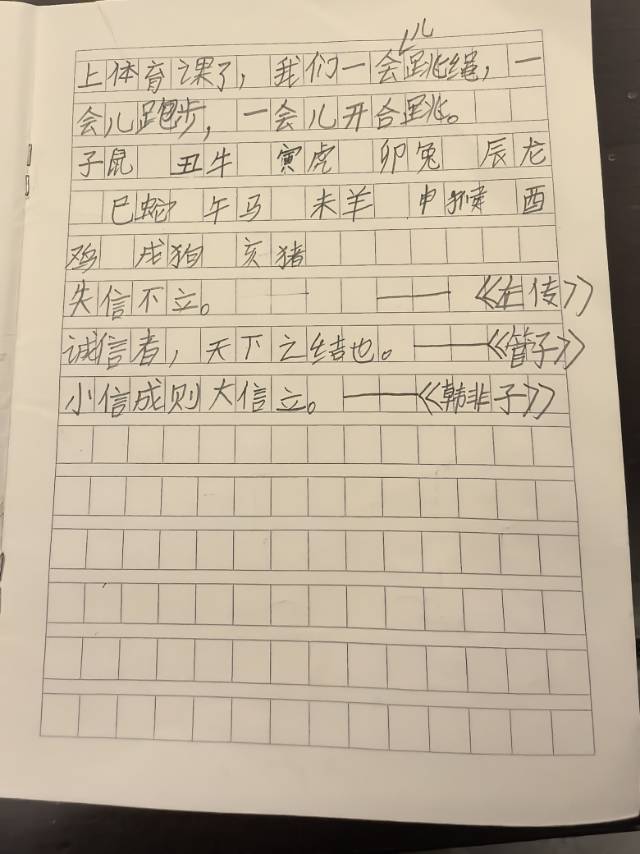 上体育课了，我们一会儿跳绳，一
会儿跑步，一会儿开合跳。
子鼠 丑牛 寅虎 卯兔 辰龙
巳蛇 午马 未羊 申猴 酉
鸡 戌狗 亥猪
失信不立。 ——《左传》
诚信者，天下之结也。——《管子》
小信成则大信立。——《韩非子》